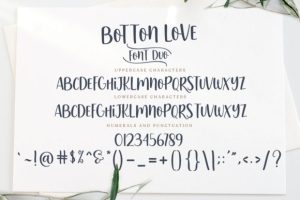 BOTTON LOVE
FONT DUO
UPPERCASE CHARACTERS
ABCDEFGHIJKLMNOPQRSTUVWXYZ
LOWERCASE CHARACTERS
ABCDEFGHIJKLMNOPQRSTUVWXYZ
NUMERALS AND PUNCTUATION
0123456789
`~!@#$%^&*()-_=+{}[]\|:;'",<.>/?